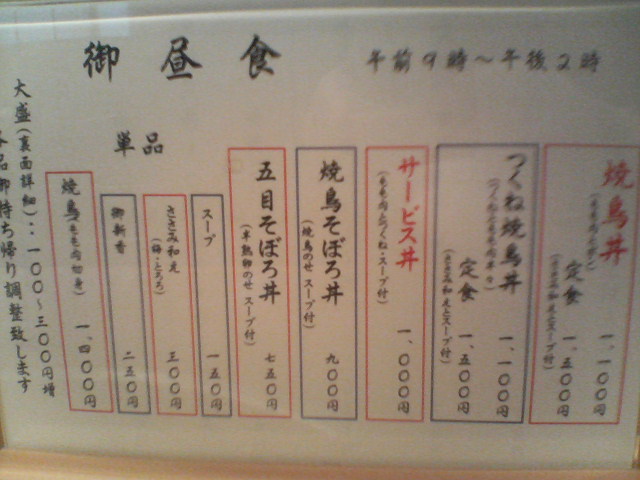 御昼食
午前9時～午後2時
焼鳥丼
一、一〇〇円
定食
一、五〇〇円
(ささみ和えとスープ付)
つくね焼鳥丼
(つくねともも肉半々)
一、一〇〇円
定食
一、五〇〇円
(ささみ和えとスープ付)
サービス丼
(もも肉とつくね・スープ付)
一、〇〇〇円
焼鳥そぼろ丼
(焼鳥のせ スープ付)
九〇〇円
五目そぼろ丼
(半熟卵のせ スープ付)
七五〇円
単品
スープ
一五〇円
ささみ和え
三〇〇円
御新香
二五〇円
焼鳥(もも肉切身)
一、四〇〇円
大盛(裏面詳細)：一〇〇～三〇〇円増
各品御持ち帰り調整致します